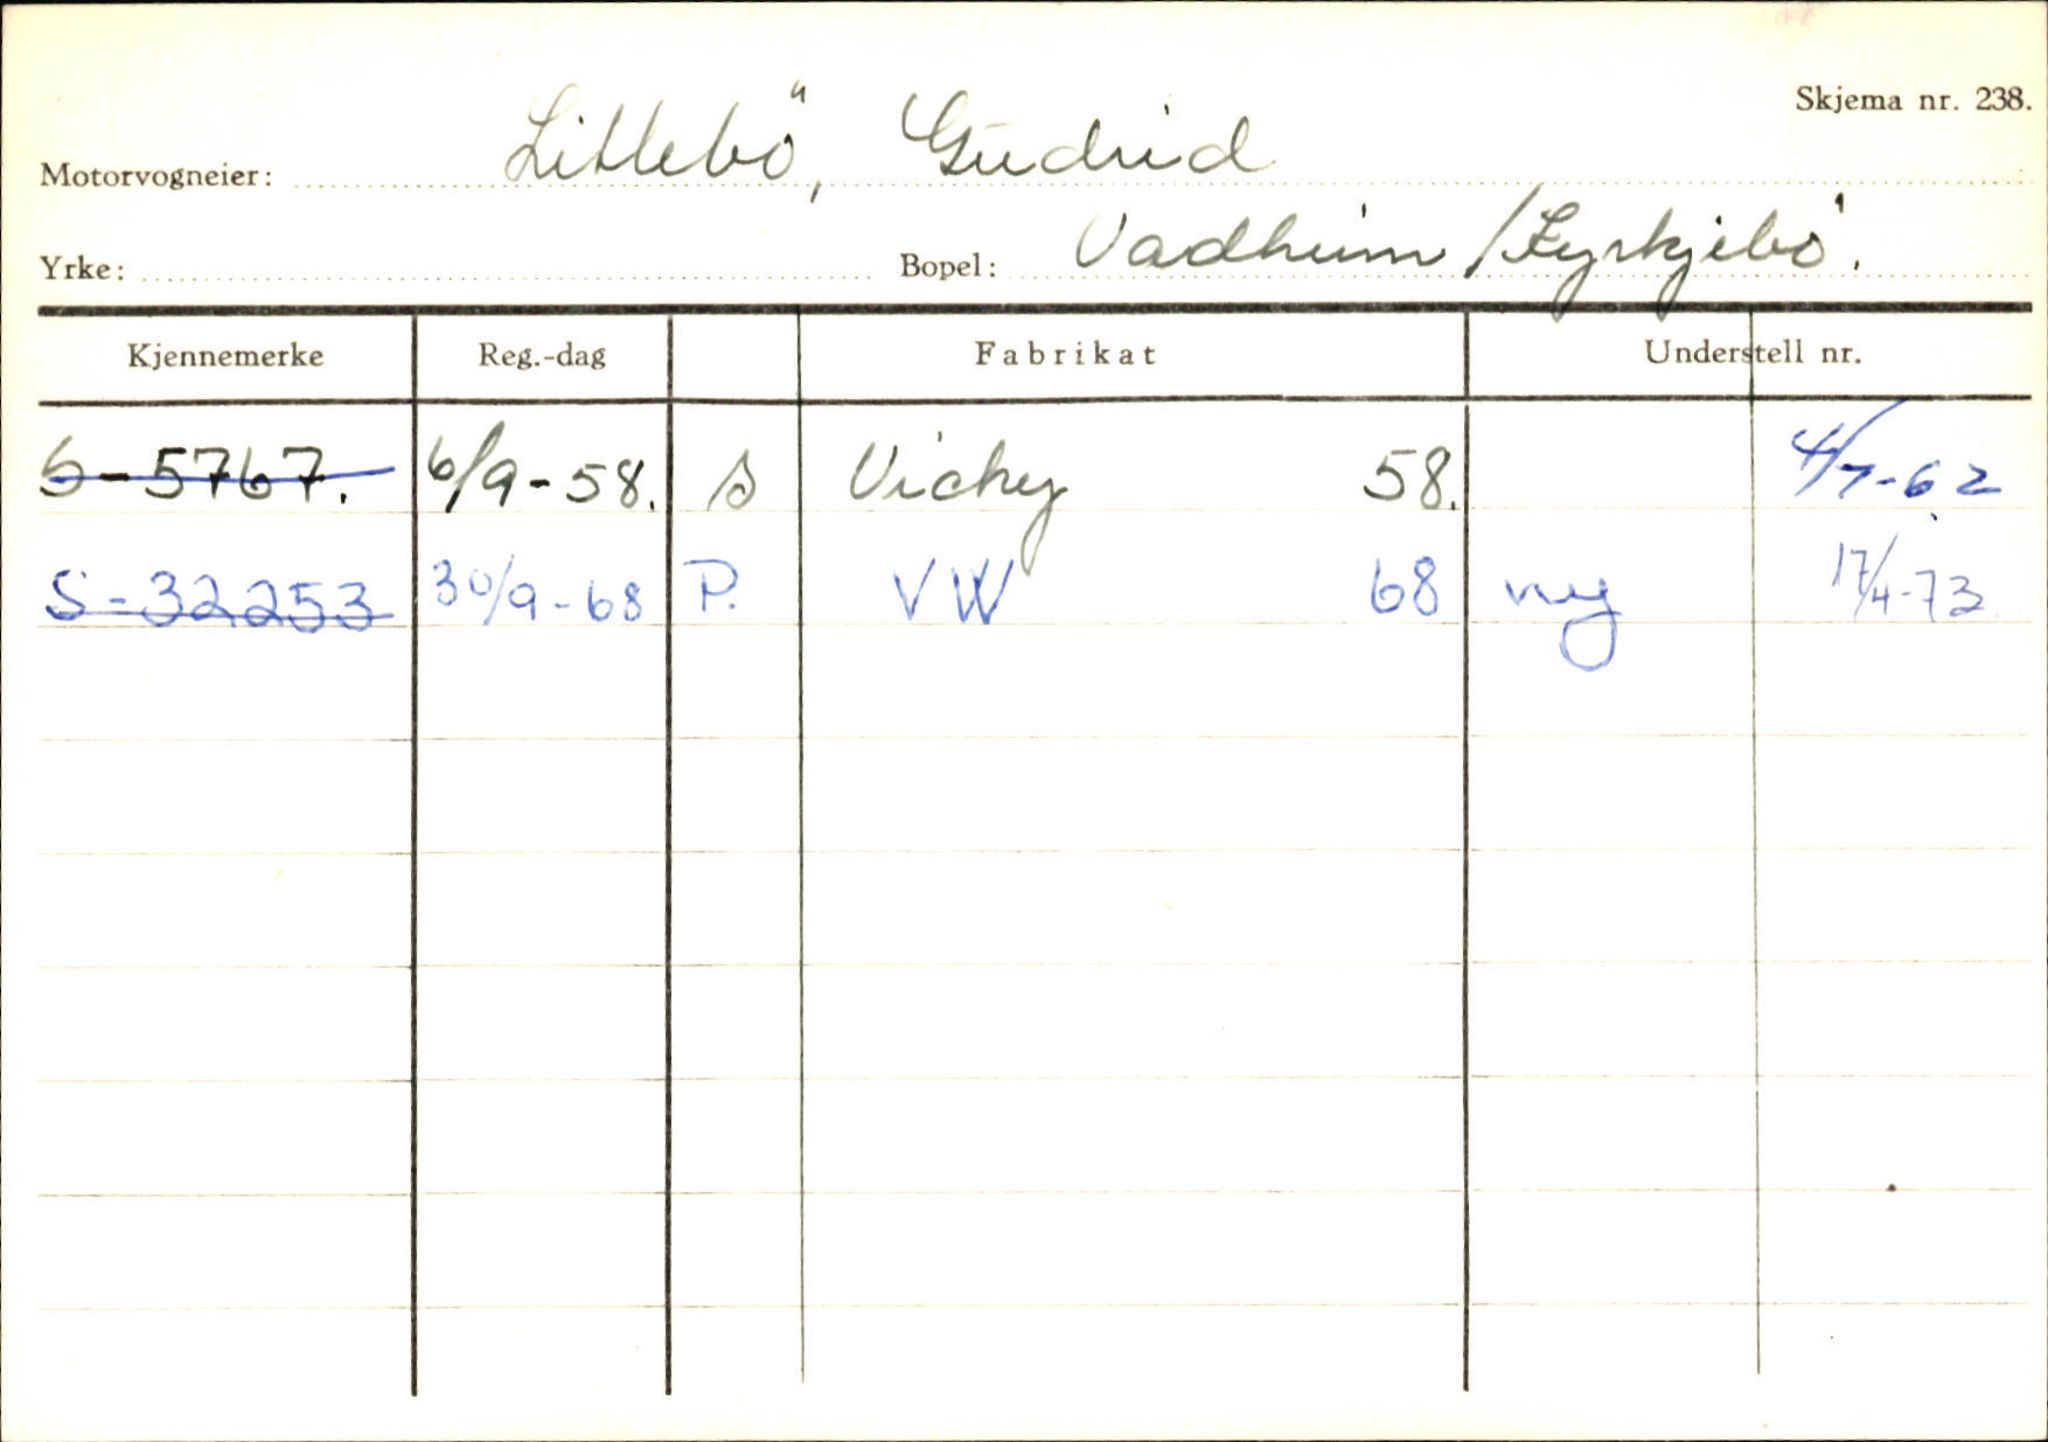 Skjema nr. 238.
Motorvogneier: Litlebö, Gudrid
Yrke: Bopel: Vadheim / Kyrkjebö.
Kjennemerke Reg.-dag Fabrikat Understell nr.
S-5767. 6/9-58. s Vicky 58. 4/7-62
S-32253 30/9-68 P. VW 68 ny 17/4-73